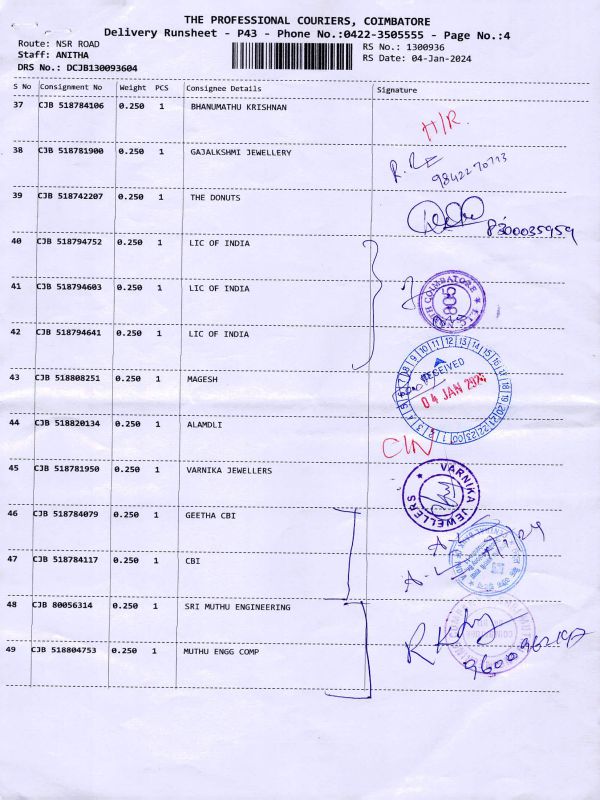 THE PROFESSIONAL COURIERS, COIMBATORE
Delivery Runsheet - P43 - Phone No.:0422-3505555 - Page No.:4
Route: NSR ROAD
Staff: ANITHA
DRS No.: DCJB130093604
RS No.: 1300936
RS Date: 04-Jan-2024
S No Consignment No Weight PCS Consignee Details Signature
37 CJB 518784106 0.250 1 BHANUMATHU KRISHNAN
H/R.
38 CJB 518781900 0.250 1 GAJALKSHMI JEWELLERY
39 CJB 518742207 0.250 1 THE DONUTS
8300035959
40 CJB 518794752 0.250 1 LIC OF INDIA
41 CJB 518794603 0.250 1 LIC OF INDIA
COIMBATORE
42 CJB 518794641 0.250 1 LIC OF INDIA
43 CJB 518808251 0.250 1 MAGESH
RECEIVED
04 JAN 2024
44 CJB 518820134 0.250 1 ALAMDLI
45 CJB 518781950 0.250 1 VARNIKA JEWELLERS
VARNIKA JEWELLERS
46 CJB 518784079 0.250 1 GEETHA CBI
47 CJB 518784117 0.250 1 CBI
48 CJB 80056314 0.250 1 SRI MUTHU ENGINEERING
49 CJB 518804753 0.250 1 MUTHU ENGG COMP